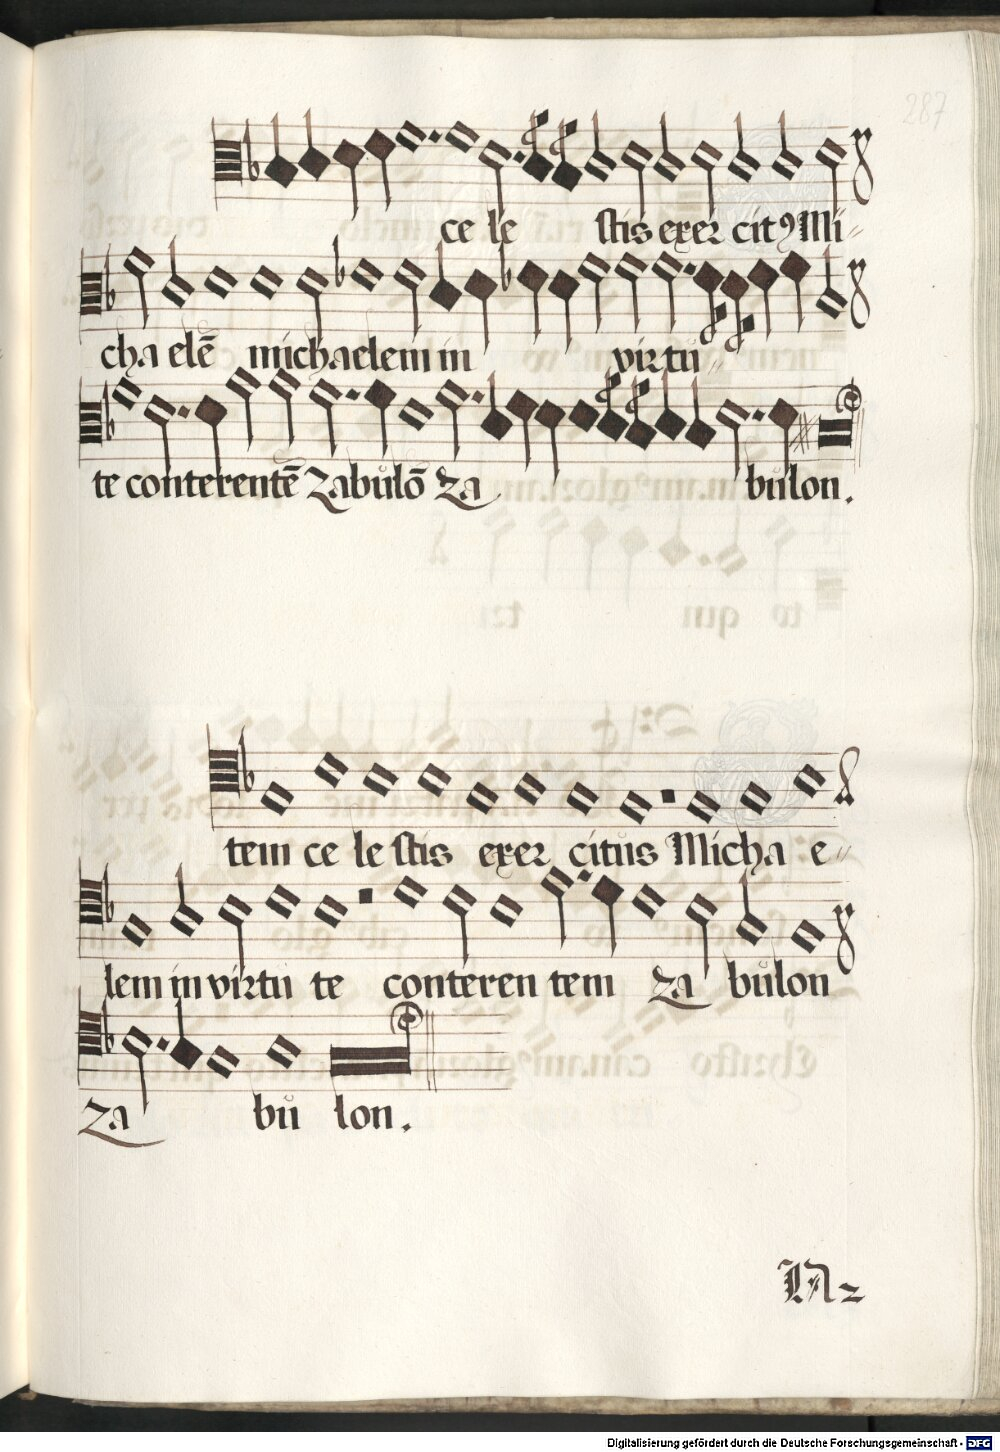 287
ce le stis exer citꝰ Mi⸗
cha elē michaelem in virtů⸗
te conterentē zabůlō za bůlon.
tem ce le stis exer citůs Micha e⸗
lem in virtů te conteren tem za bůlon
za bů lon.
Digitalisierung gefördert durch die Deutsche Forschungsgemeinschaft - DFG